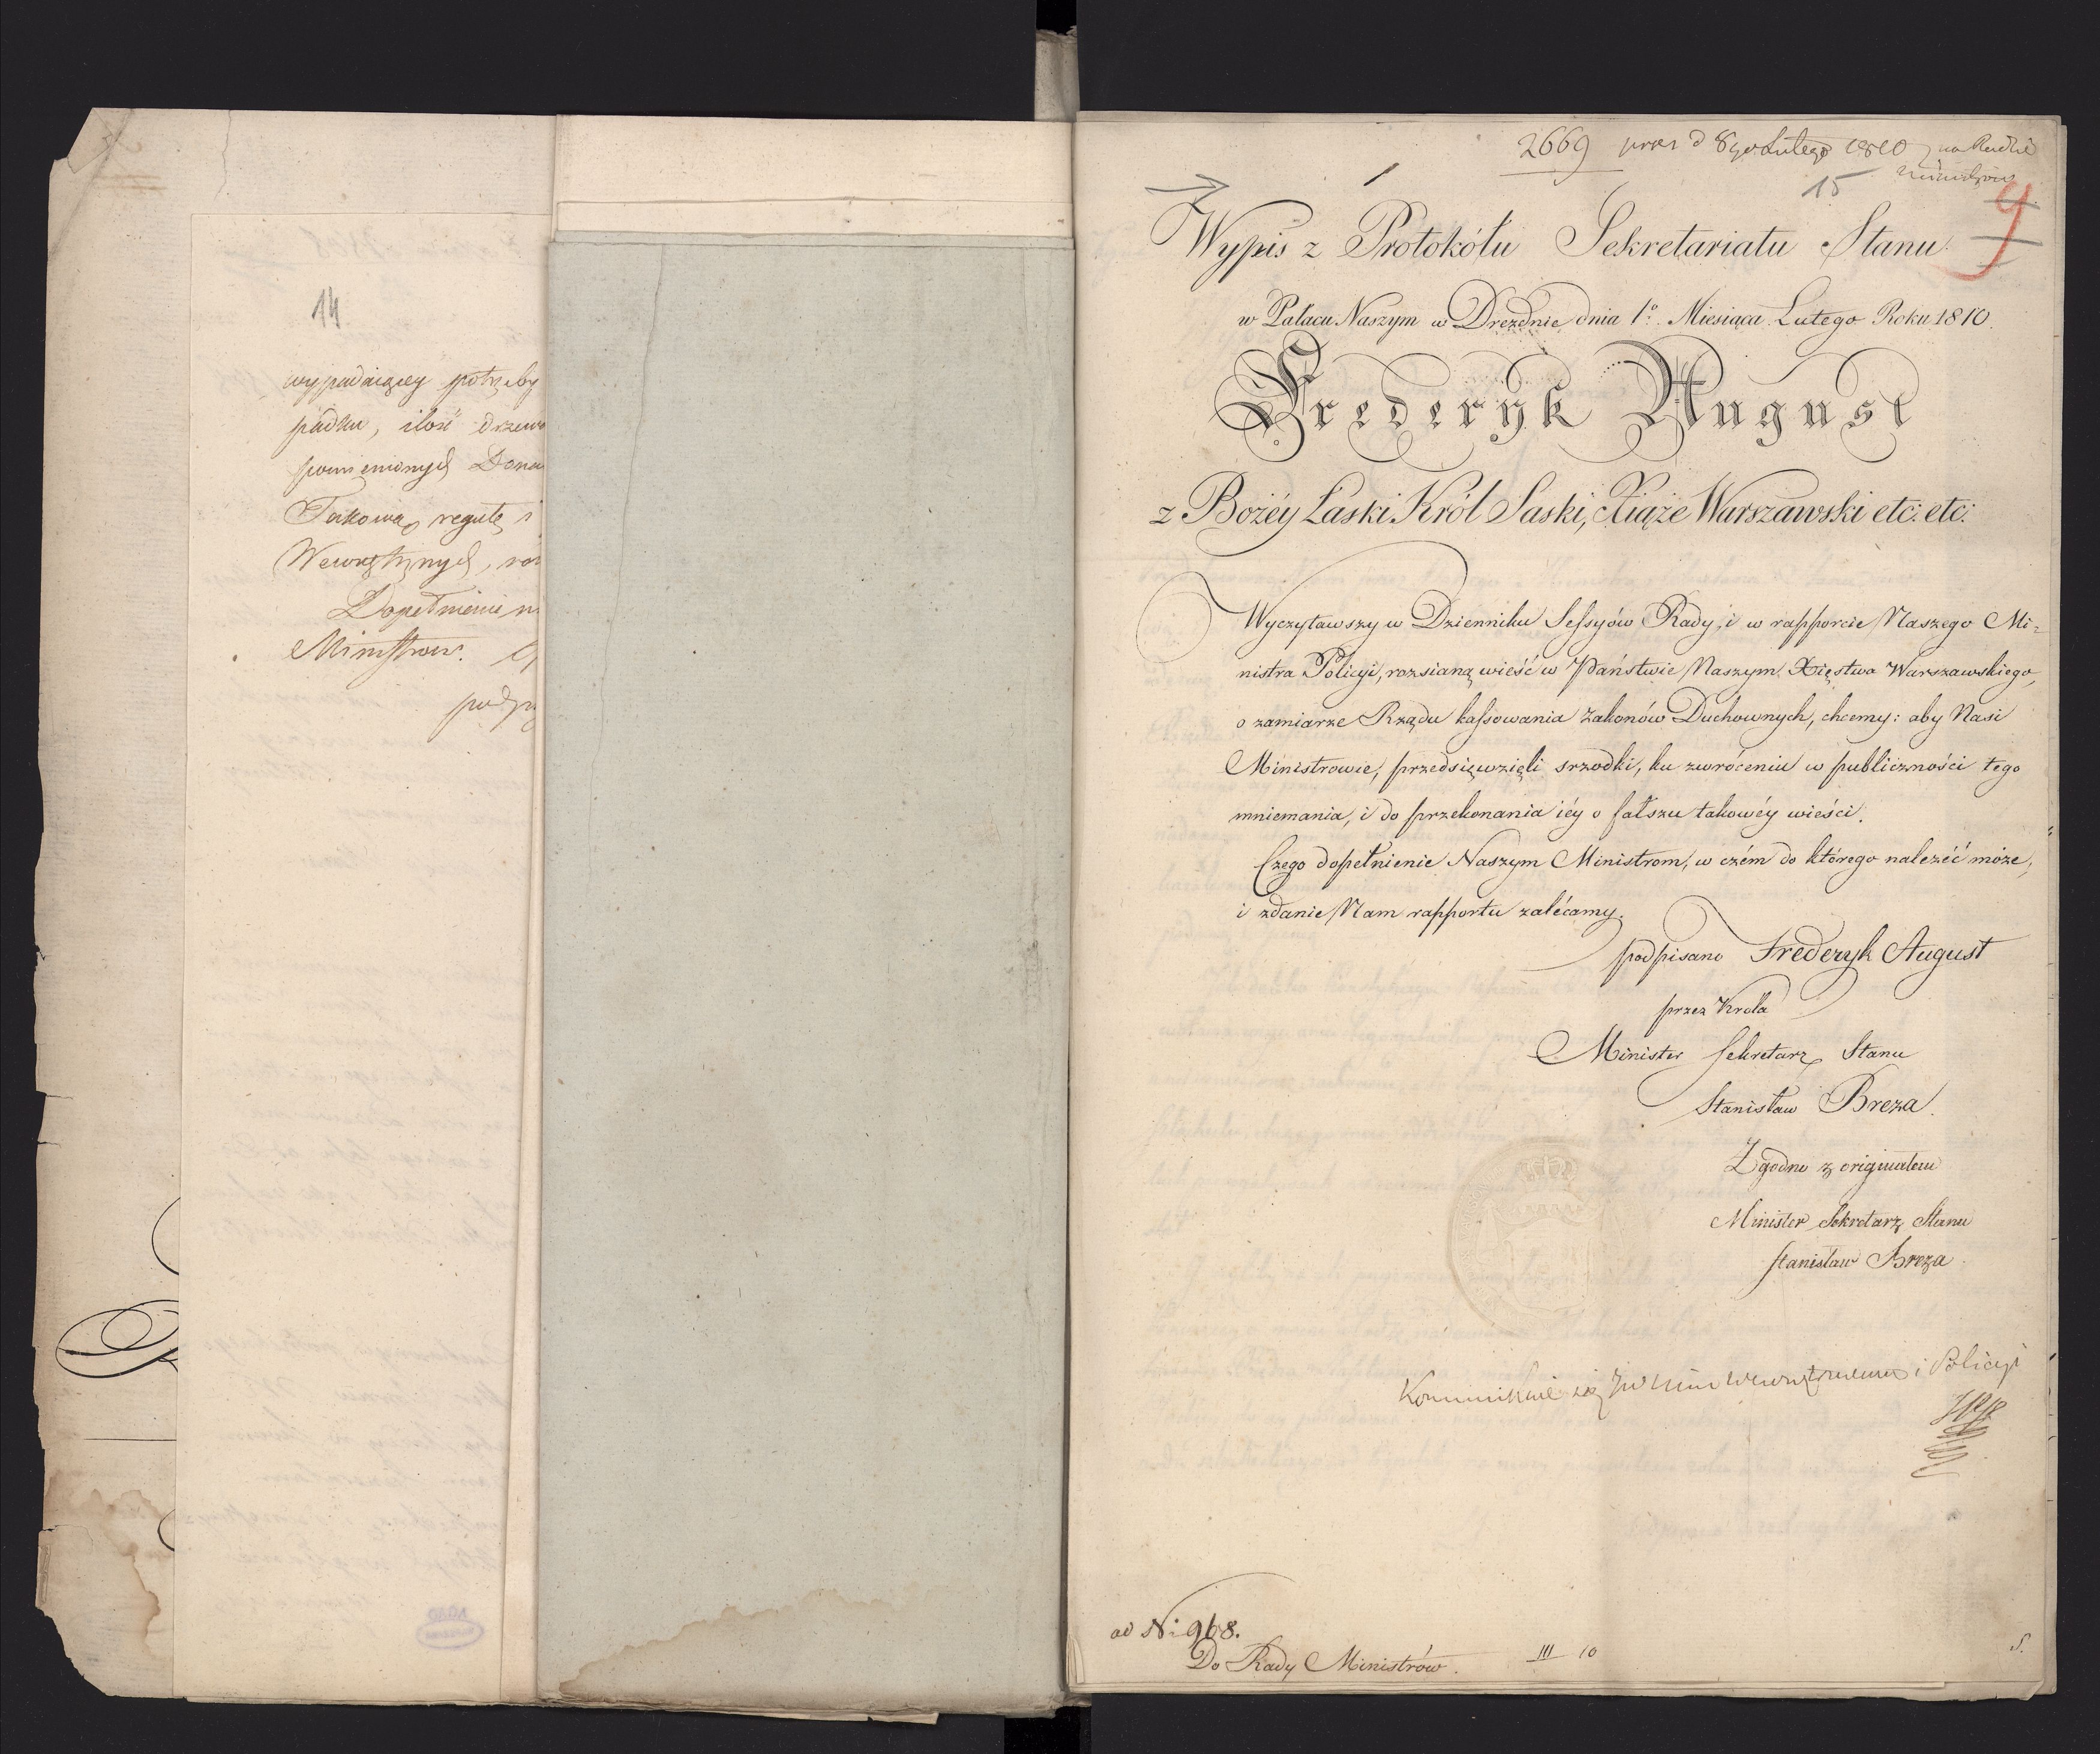 14
wypadaiącey potrzeby
padku, ilość drzewa
pomienionych
Takową regułę i
Wewnętrznych,
Dopełnienie
Ministrów.
2669 d 8go Lutego 1810 na Radzie
Ministrów
1
15
9
Wypis z Protokółu Sekretariatu Stanu.
w Pałacu Naszym w Dreźnie dnia 1o. Miesiąca Lutego Roku 1810.
Frederyk August
z Bożéy Łaski Król Saski, Xiąże Warszawski etc: etc:
Wyczytawszy w Dzienniku Sessyów Rady, i w rapporcie Naszego Mi=
nistra Policyi, rozsianą wieść w Państwie Naszym Xięstwa Warszawskiego,
o zamiarze Rządu kassowania Zakonów Duchownych, chcemy: aby Nasi
Ministrowie, przedsięwzięli srzodki, ku zwróceniu w publiczności tego
mniemania, i do przekonania iéy o fałszu takowéy wieści.
Czego dopełnienie Naszym Ministrom, w czém do którego należéć może,
i zdanie Nam rapportu zalécamy.
podpisano Frederyk August
przez Króla
Minister Sekretarz Stanu
Stanisław Breza.
Zgodno z originałem
Minister Sekretarz Stanu
Stanisław Breza.
i Policyi
ad N: 968.
Do Rady Ministrów.
III 10
S.